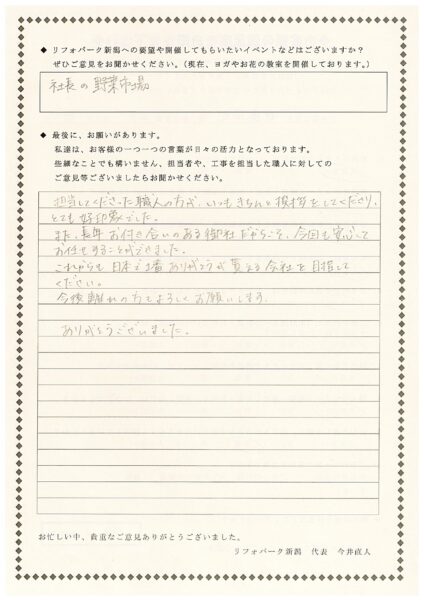 ◆ リフォパーク新潟への要望や開催してもらいたいイベントなどはございますか？
ぜひご意見をお聞かせください。(現在、ヨガやお花の教室を開催しております。)
社長の野菜市場
◆ 最後に、お願いがあります。
私達は、お客様の一つ一つの言葉が日々の活力となっております。
些細なことでも構いません、担当者や、工事を担当した職人に対しての
ご意見等ございましたらお聞かせください。
担当してくださった職人の方が、いつもきちんと挨拶をしてくださり、
とても好印象でした。
また、長年お付き合いのある御社だからこそ、今回も安心して
お任せすることができました。
これからも日本で1番ありがとうが言える会社を目指して
ください。
今後離れの方もよろしくお願いします。
ありがとうございました。
お忙しい中、貴重なご意見ありがとうございました。
リフォパーク新潟 代表 今井直人